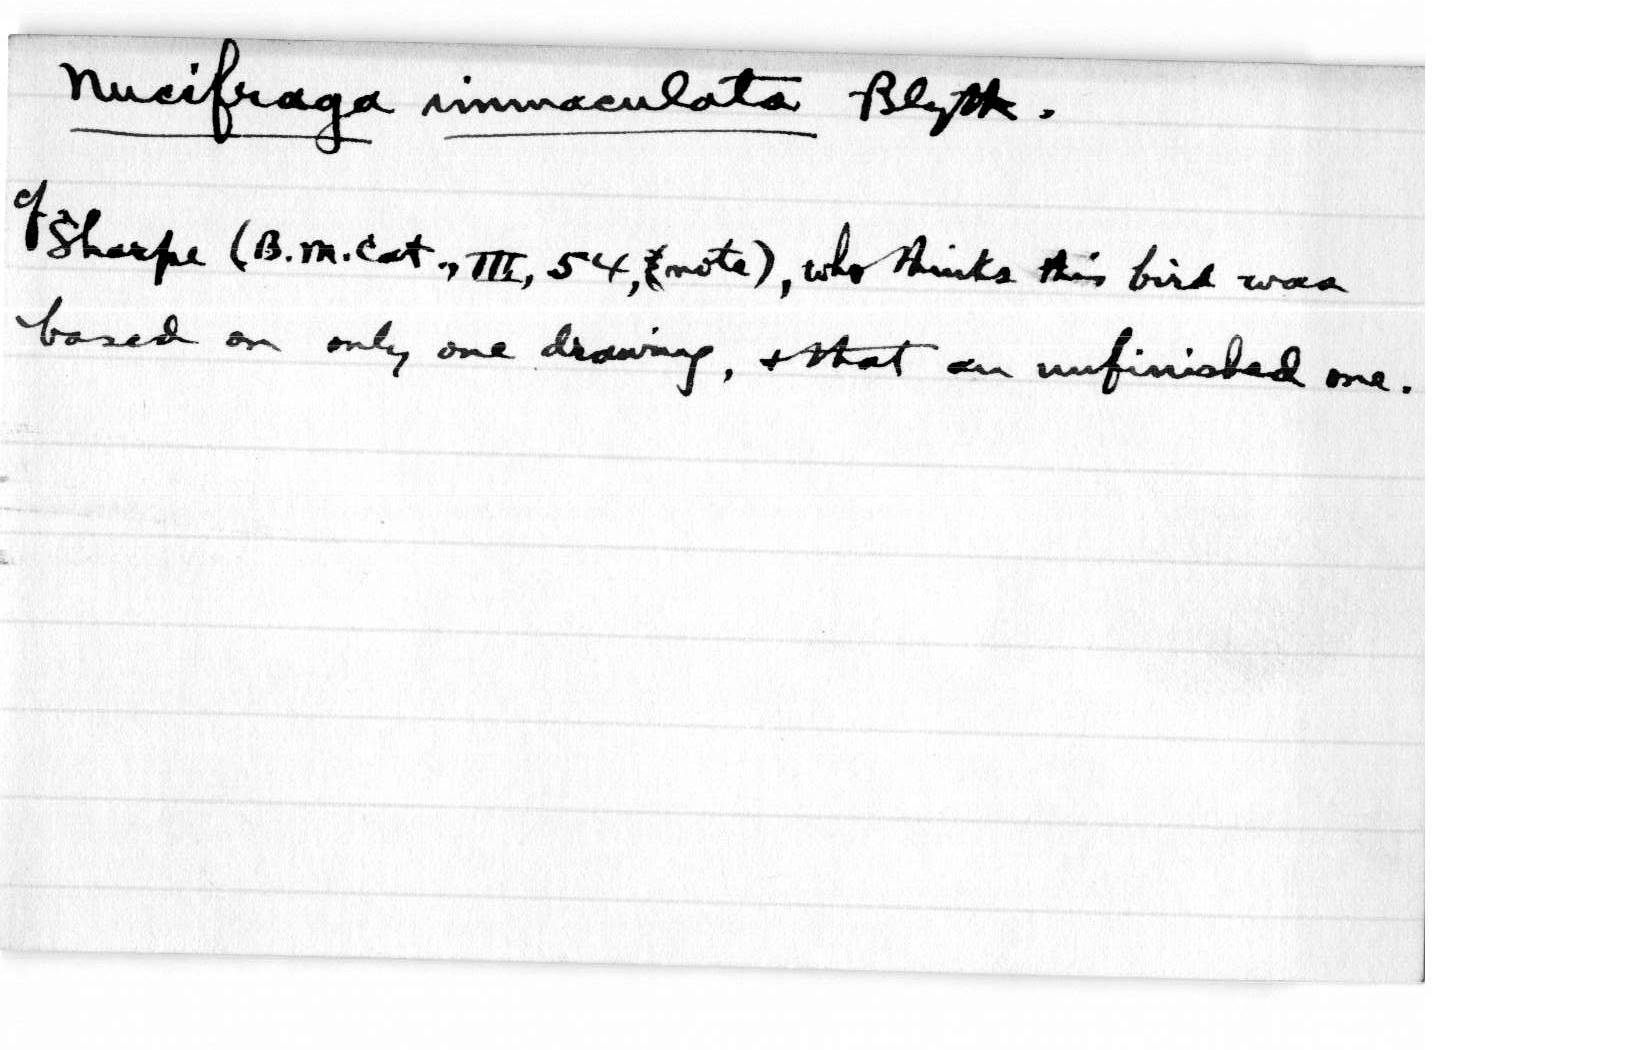 Nucifraga immaculata Blyth.
cf. Sharpe (B.M. Cat., III, 54, note), who thinks this bird was
based on only one drawing, + that an unfinished one.